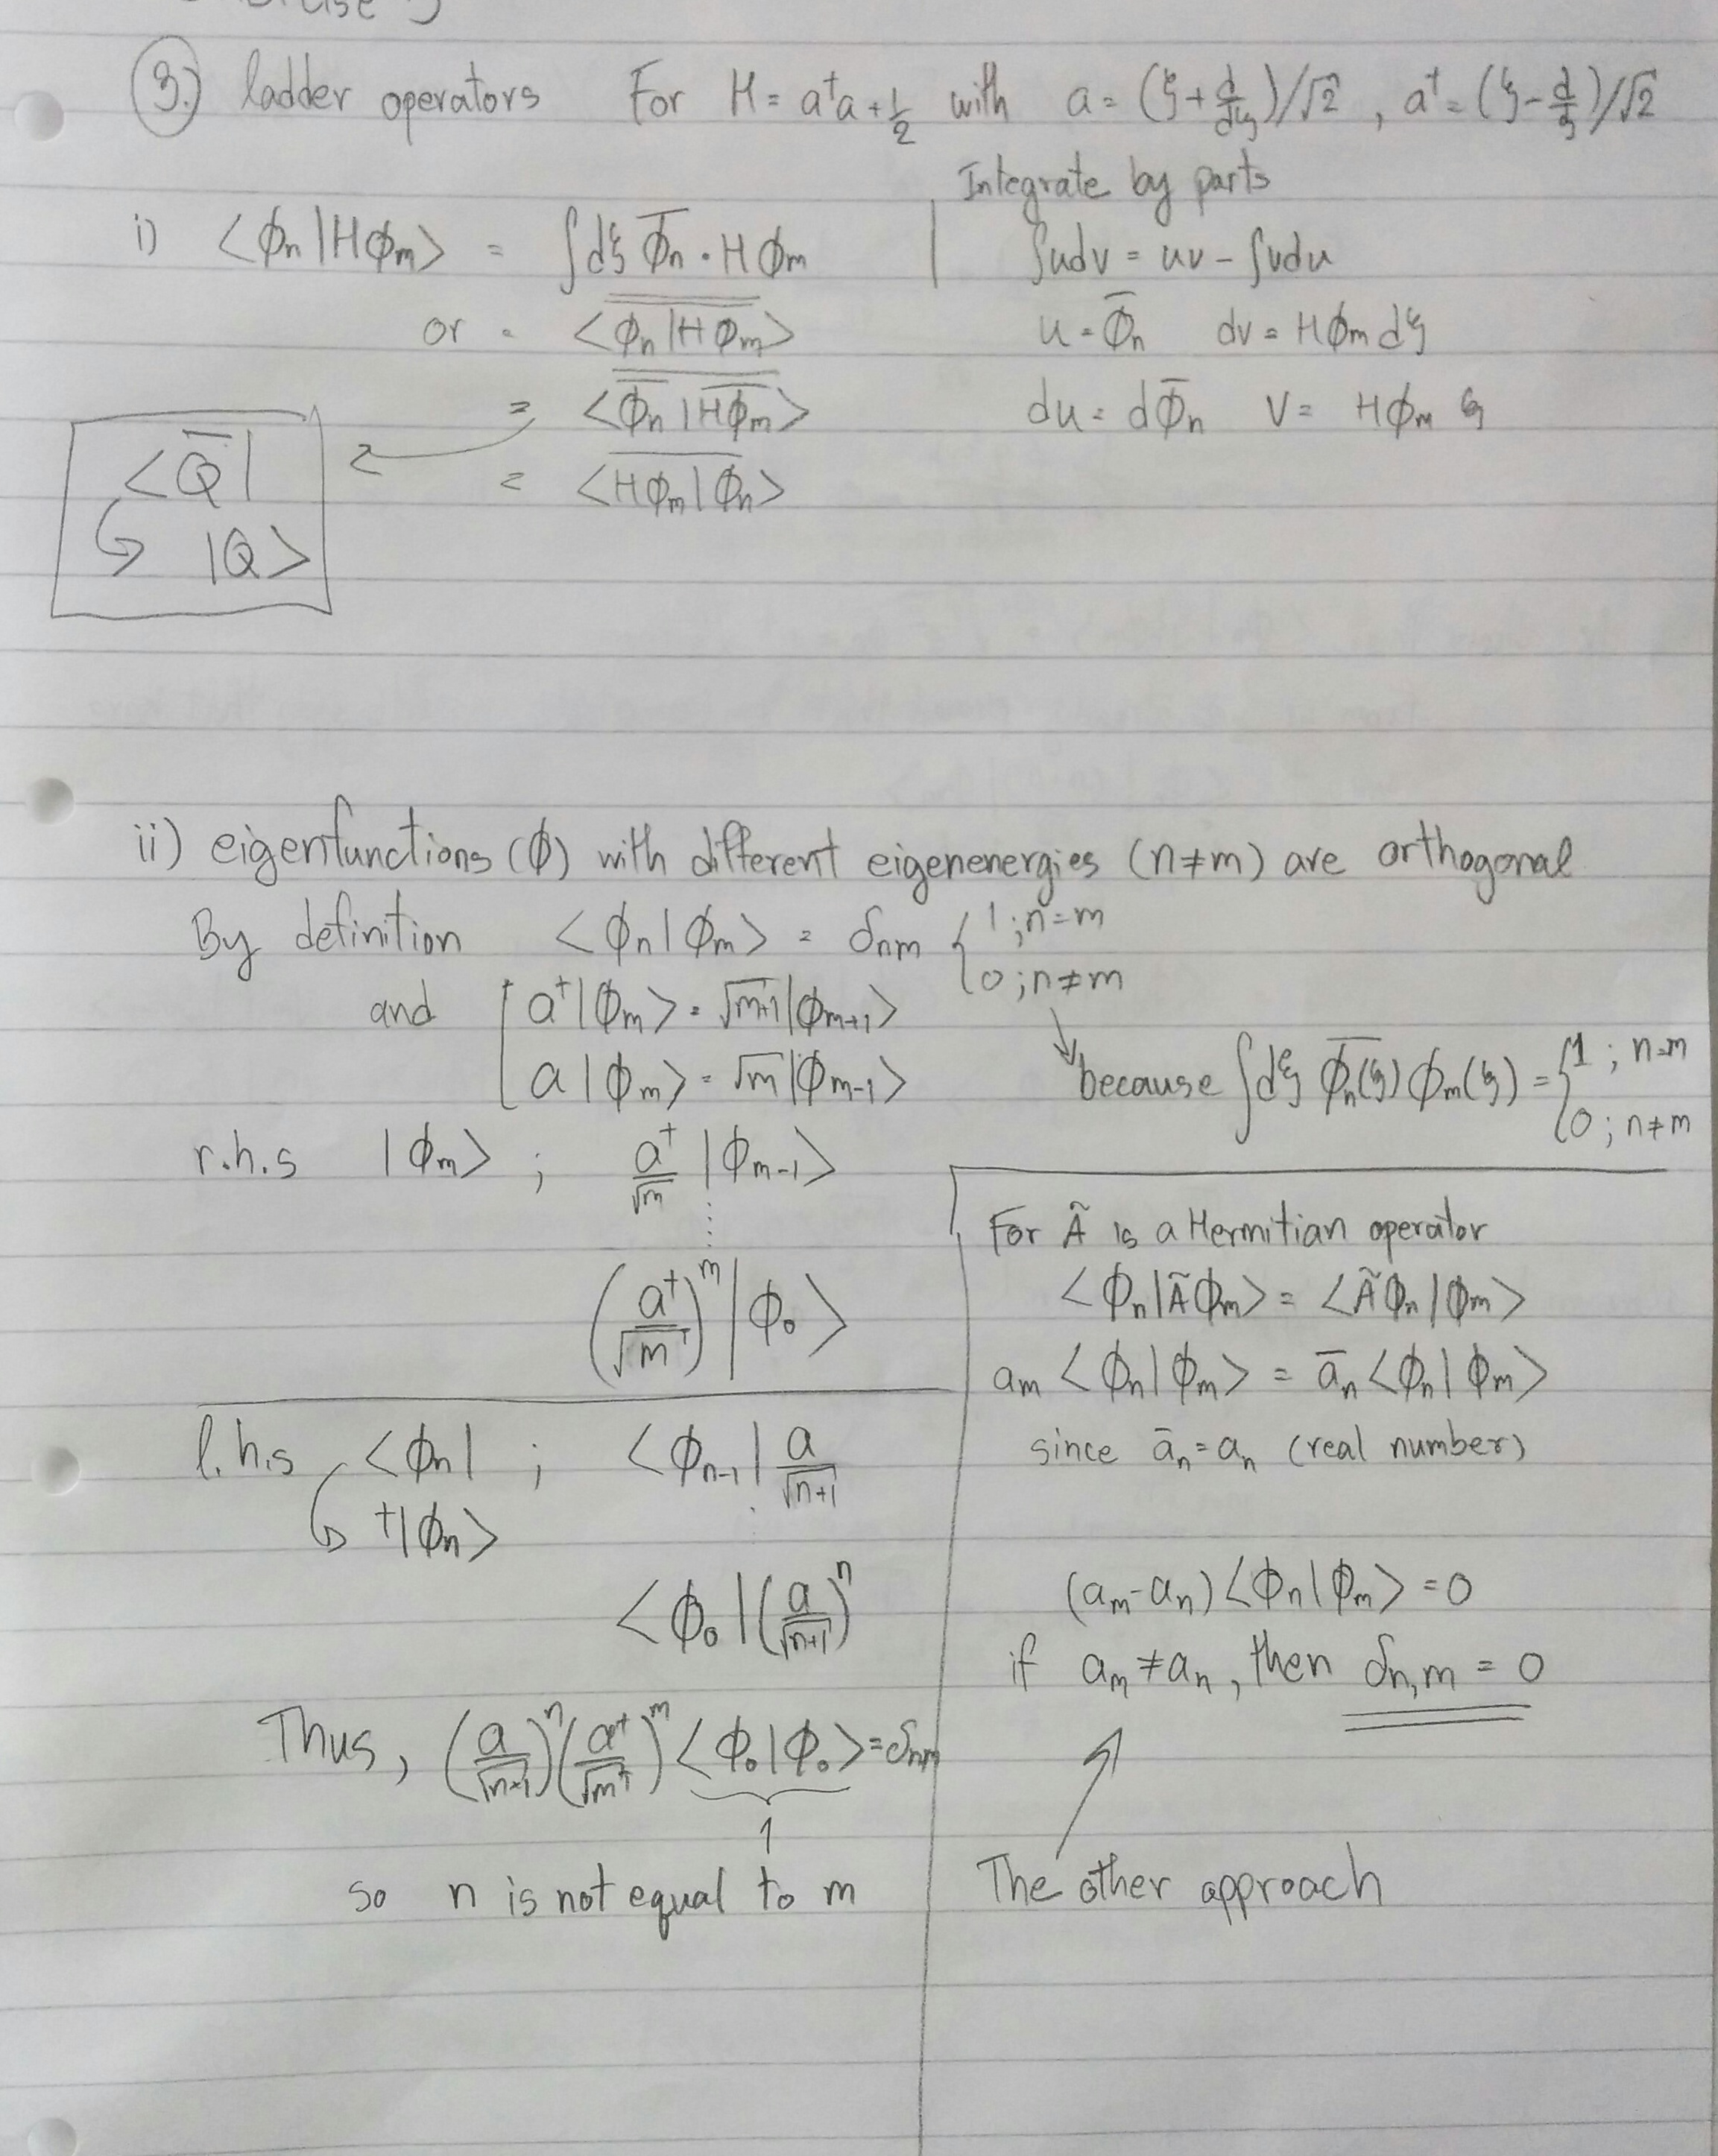 3.) ladder operators For H = a†a + 1/2 with a = (ξ + d/dξ)/√2 , a† = (ξ - d/ξ)/√2
Integrate by parts
i) <ϕn|Hϕm> = ∫dξ ϕ̅n · Hϕm
∫udv = uv - ∫vdu
or = <ϕn|Hϕm>
u = ϕ̅n dv = Hϕm dξ
= <ϕ̅n|Hϕm>
du = dϕ̅n V = Hϕm ξ
<Q̅|
= <Hϕm|ϕn>
|Q>
ii) eigenfunctions (ϕ) with different eigenenergies (n≠m) are orthogonal
By definition <ϕn|ϕm> = δnm { 1 ; n=m
0 ; n≠m
and [ a†|ϕm> = √m+1 |ϕm+1>
a|ϕm> = √m |ϕm-1>
because ∫dξ ϕ̅n(ξ) ϕm(ξ) = { 1 ; n=m
0 ; n≠m
r.h.s |ϕm> ; a†/√m |ϕm-1>
(a†/√m)^m |ϕ₀>
l.h.s <ϕn| ; <ϕn-1| a/√n+1
†|ϕn>
<ϕ₀|(a/√n+1)^n
Thus, (a/√n+1)^n (a†/√m)^m <ϕ₀|ϕ₀> = δnm
1
so n is not equal to m
For Ã is a Hermitian operator
<ϕn|Ãϕm> = <Ãϕn|ϕm>
am <ϕn|ϕm> = a̅n <ϕn|ϕm>
since a̅n = an (real number)
(am - an) <ϕn|ϕm> = 0
if am ≠ an , then δn,m = 0
The other approach